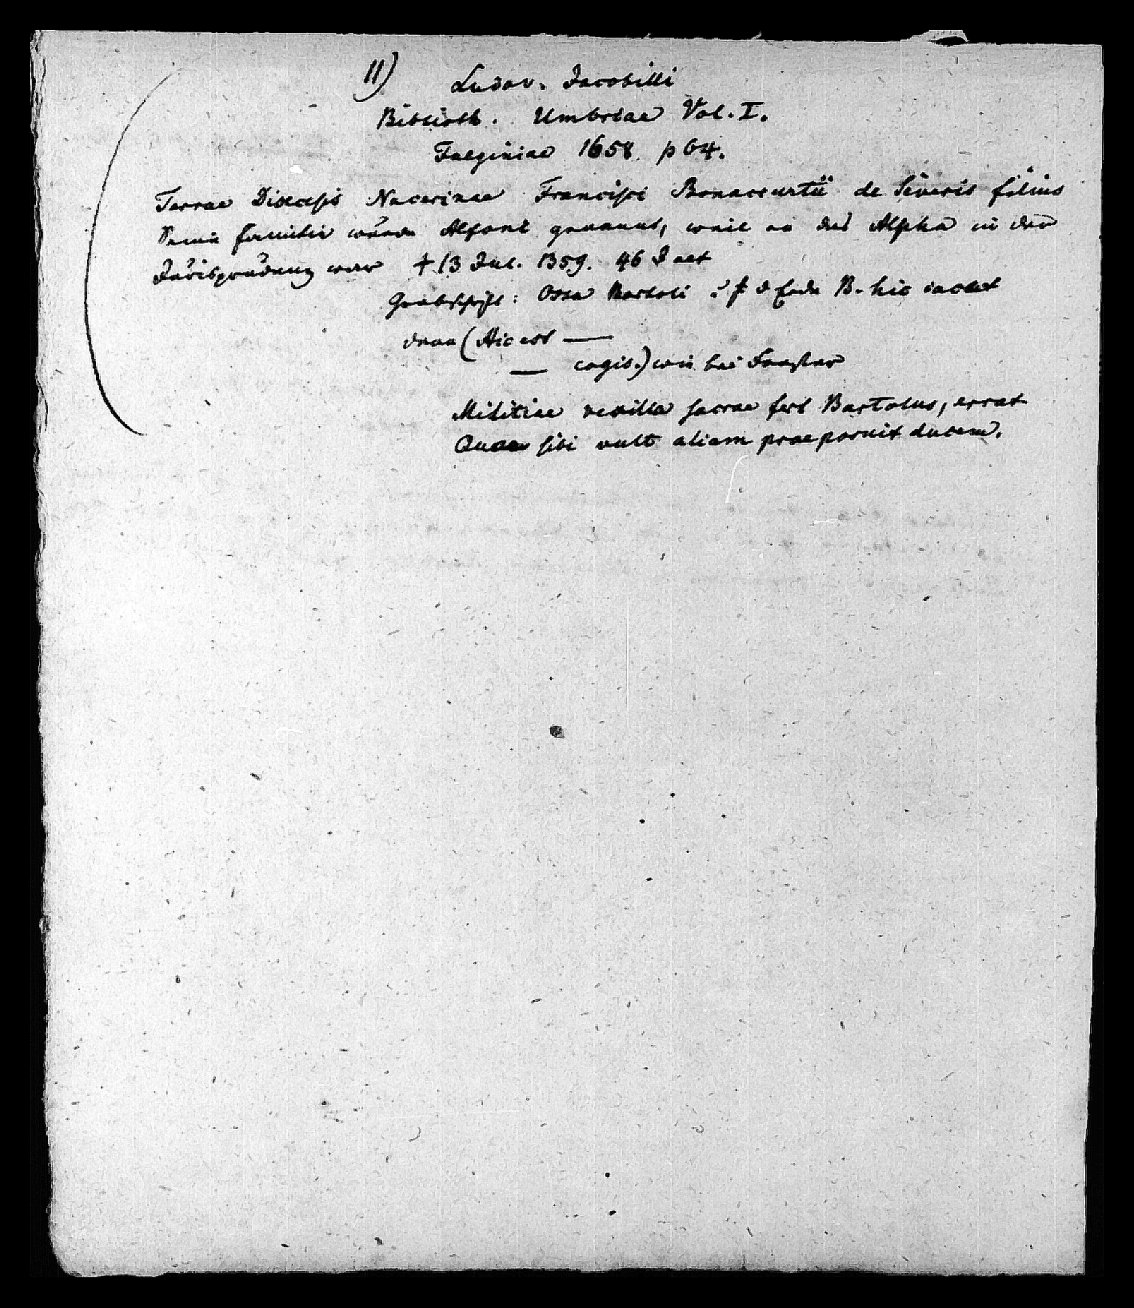 11)
Ludov. Jacobilli
Biblioth. Umbriae Vol. I.
Fulginiae 1658. p 64.
Terrae Dioecesis Nucerinae Francisci Bonaccurtii de Severis filius
Seine Familie wurde Alfani genannt, weil er das Alpha in der
Jurisprudenz war † 13 Jul. 1359. 46 J aet
Grabschrift: Ossa Bartoli B. hic iacet
dann (Hic est —
— cogis.) wie bei Forster
Militiae vexilla sacrae fert Bartolus, errat
Quae sibi vult aliam praeposuit ducem.